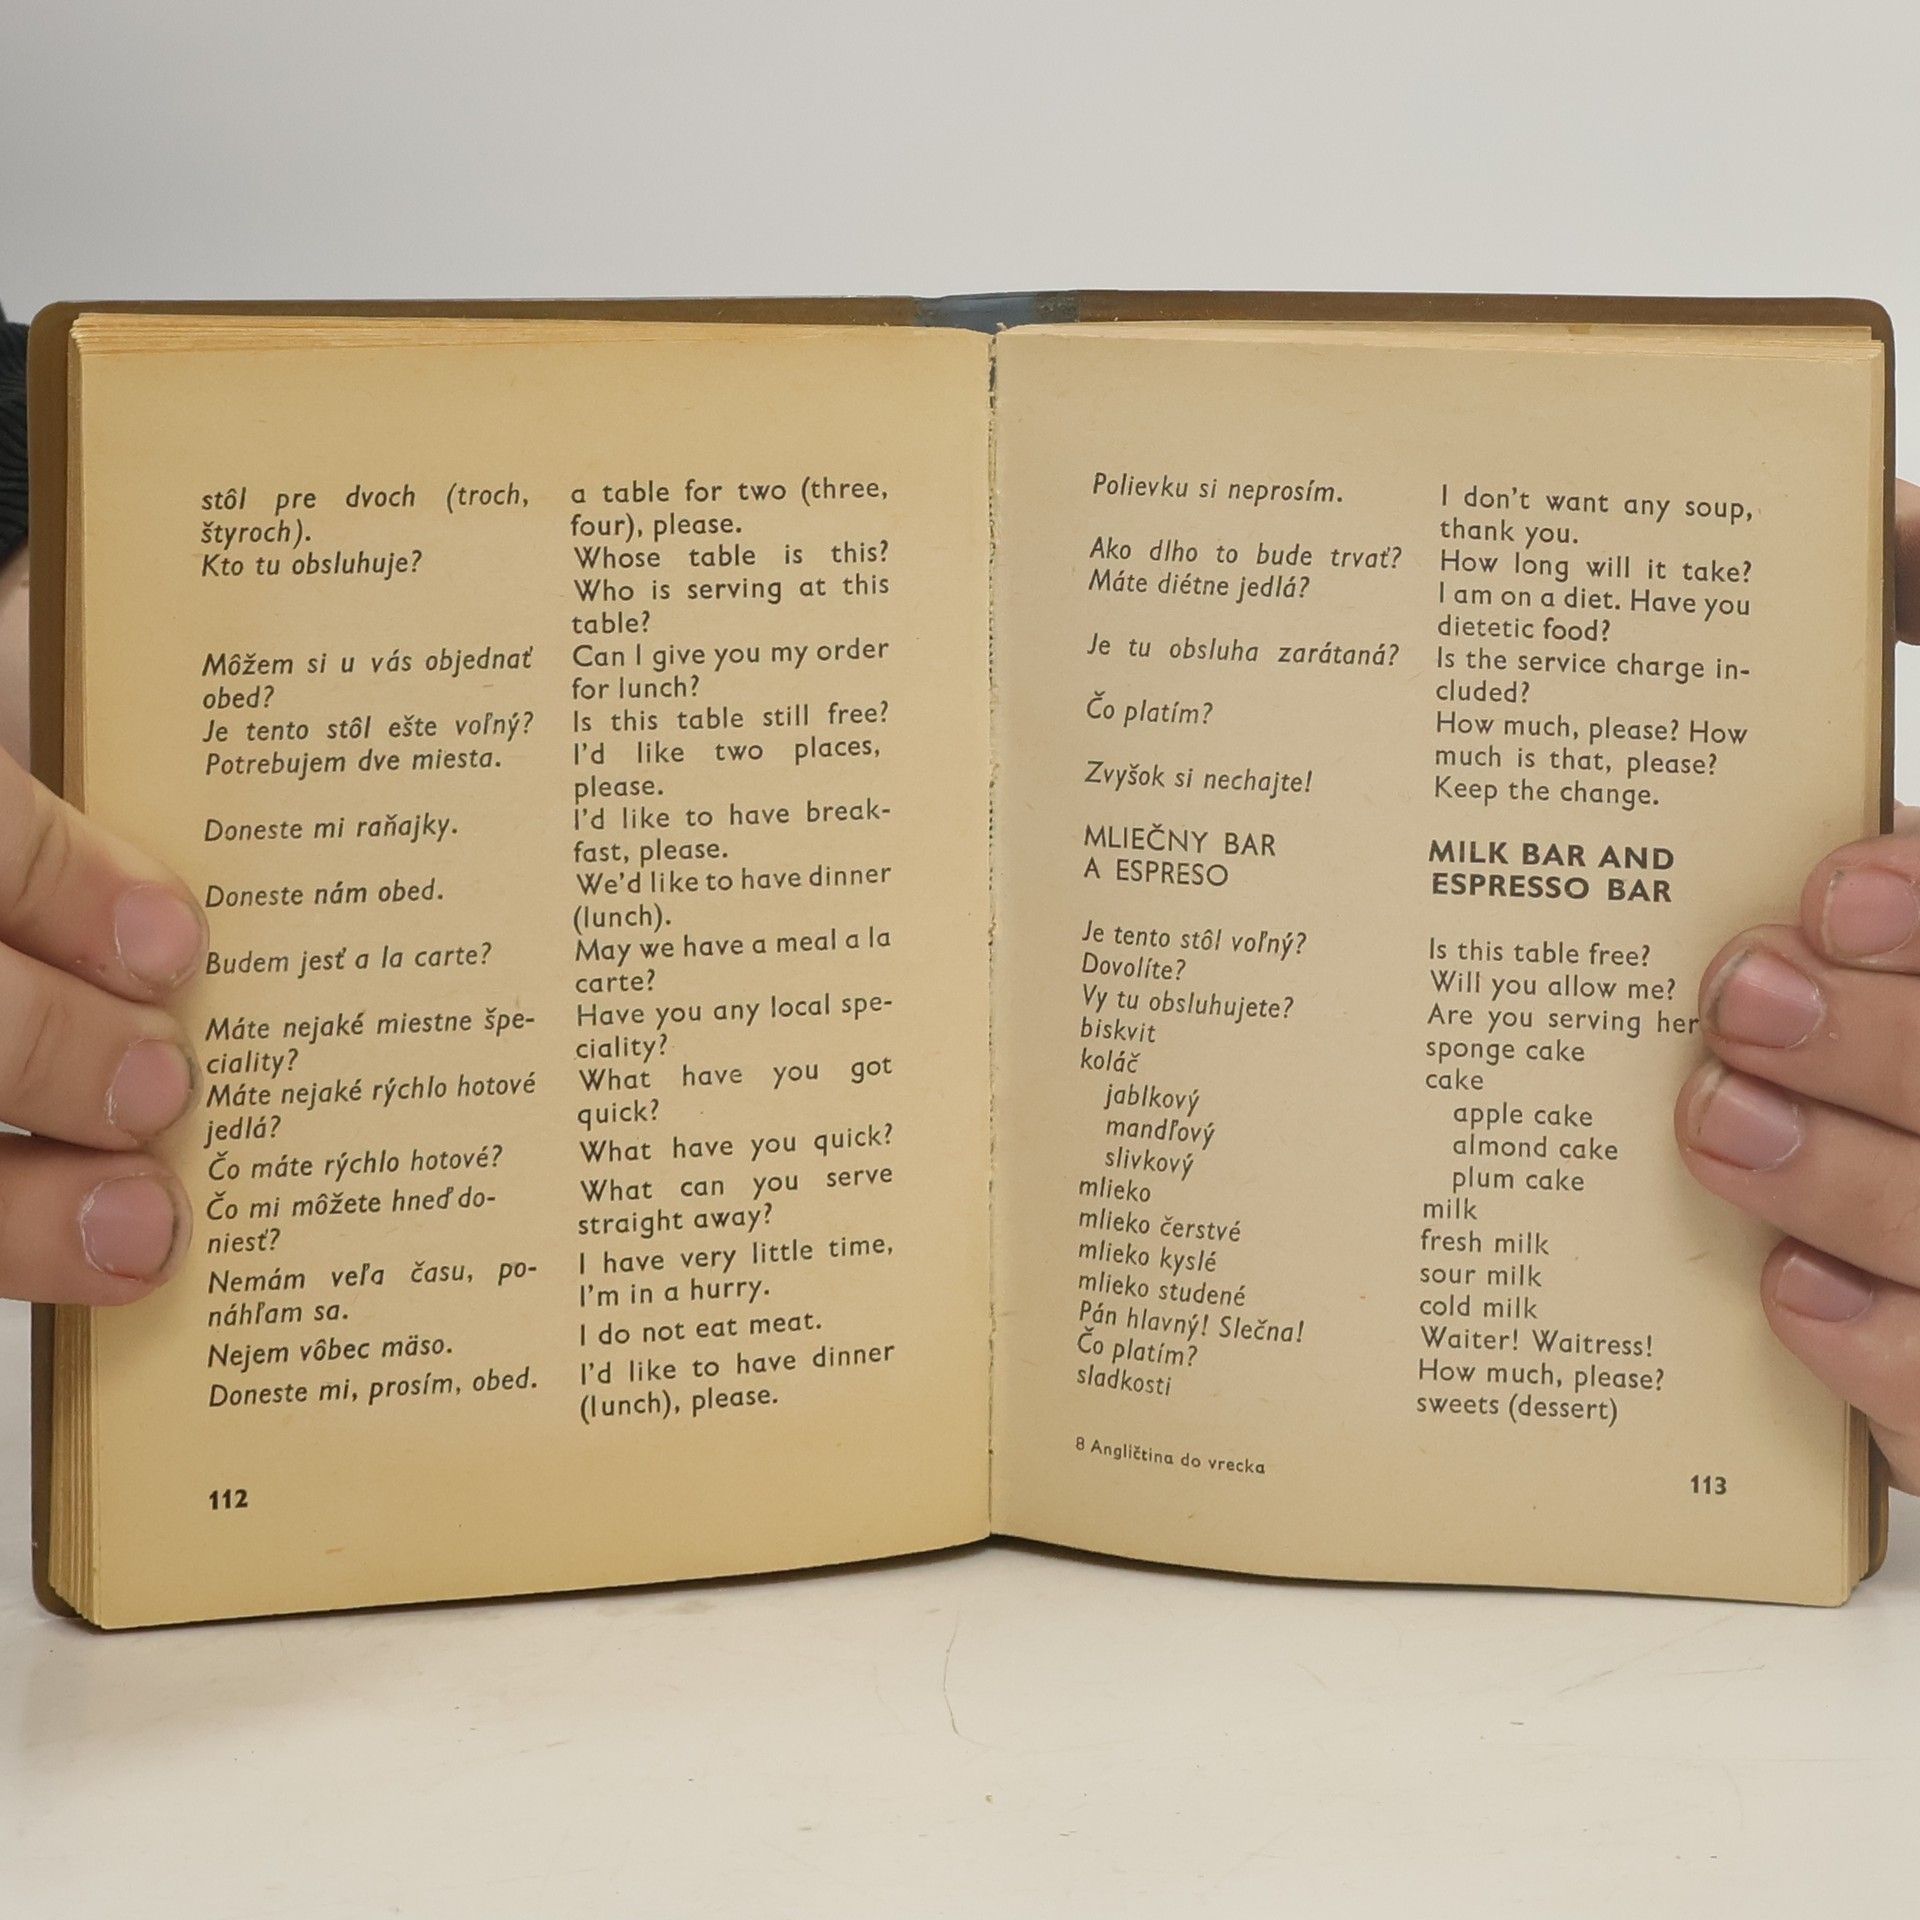 stôl pre dvoch (troch,
štyroch).
Kto tu obsluhuje?
Môžem si u vás objednať
obed?
Je tento stôl ešte voľný?
Potrebujem dve miesta.
Doneste mi raňajky.
Doneste nám obed.
Budem jesť a la carte?
Máte nejaké miestne špe-
ciality?
Máte nejaké rýchlo hotové
jedlá?
Čo máte rýchlo hotové?
Čo mi môžete hneď do-
niesť?
Nemám veľa času, po-
náhľam sa.
Nejem vôbec mäso.
Doneste mi, prosím, obed.
a table for two (three,
four), please.
Whose table is this?
Who is serving at this
table?
Can I give you my order
for lunch?
Is this table still free?
I'd like two places,
please.
I'd like to have break-
fast, please.
We'd like to have dinner
(lunch).
May we have a meal a la
carte?
Have you any local spe-
ciality?
What have you got
quick?
What have you quick?
What can you serve
straight away?
I have very little time,
I'm in a hurry.
I do not eat meat.
I'd like to have dinner
(lunch), please.
112
Polievku si neprosím.
Ako dlho to bude trvať?
Máte diétne jedlá?
Je tu obsluha zarátaná?
Čo platím?
Zvyšok si nechajte!
MLIEČNY BAR
A ESPRESO
Je tento stôl voľný?
Dovolíte?
Vy tu obsluhujete?
biskvit
koláč
jablkový
mandľový
slivkový
mlieko
mlieko čerstvé
mlieko kyslé
mlieko studené
Pán hlavný! Slečna!
Čo platím?
sladkosti
I don't want any soup,
thank you.
How long will it take?
I am on a diet. Have you
dietetic food?
Is the service charge in-
cluded?
How much, please? How
much is that, please?
Keep the change.
MILK BAR AND
ESPRESSO BAR
Is this table free?
Will you allow me?
Are you serving her
sponge cake
cake
apple cake
almond cake
plum cake
milk
fresh milk
sour milk
cold milk
Waiter! Waitress!
How much, please?
sweets (dessert)
8 Angličtina do vrecka
113